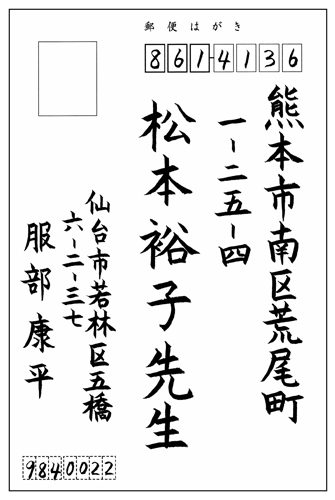 郵便はがき
8614136
熊本市南区荒尾町
一-二五-四
松本裕子先生
仙台市若林区五橋
六-二-三七
服部康平
9840022